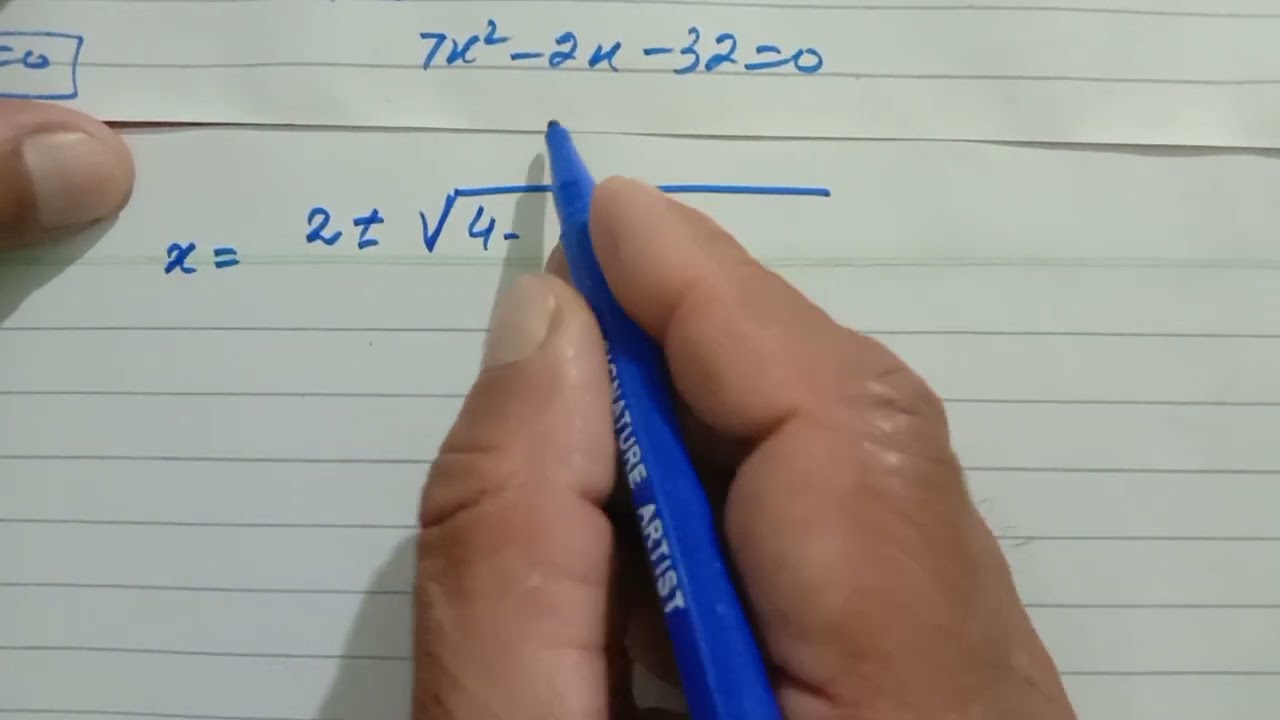 =0
7x² - 2x - 32 = 0
x = 2 ± √4 -
SIGNATURE ARTIST